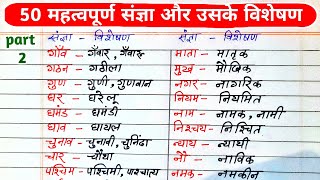 50 महत्वपूर्ण संज्ञा और उसके विशेषण
part 2
संज्ञा - विशेषण
गाँव - गँवार, गँवारू
गठन - गठीला
गुण - गुणी, गुणवान
घर - घरेलू
घमंड - घमंडी
घाव - घायल
चुनाव - चुनावी, चुनिंदा
चार - चौथा
पश्चिम - पश्चिमी, पाश्चात्य
संज्ञा - विशेषण
माता - मातृक
मुख - मौखिक
नगर - नागरिक
नियम - नियमित
नाम - नामक, नामी
निश्चय - निश्चित
न्याय - न्यायी
नौ - नाविक
नमक - नमकीन